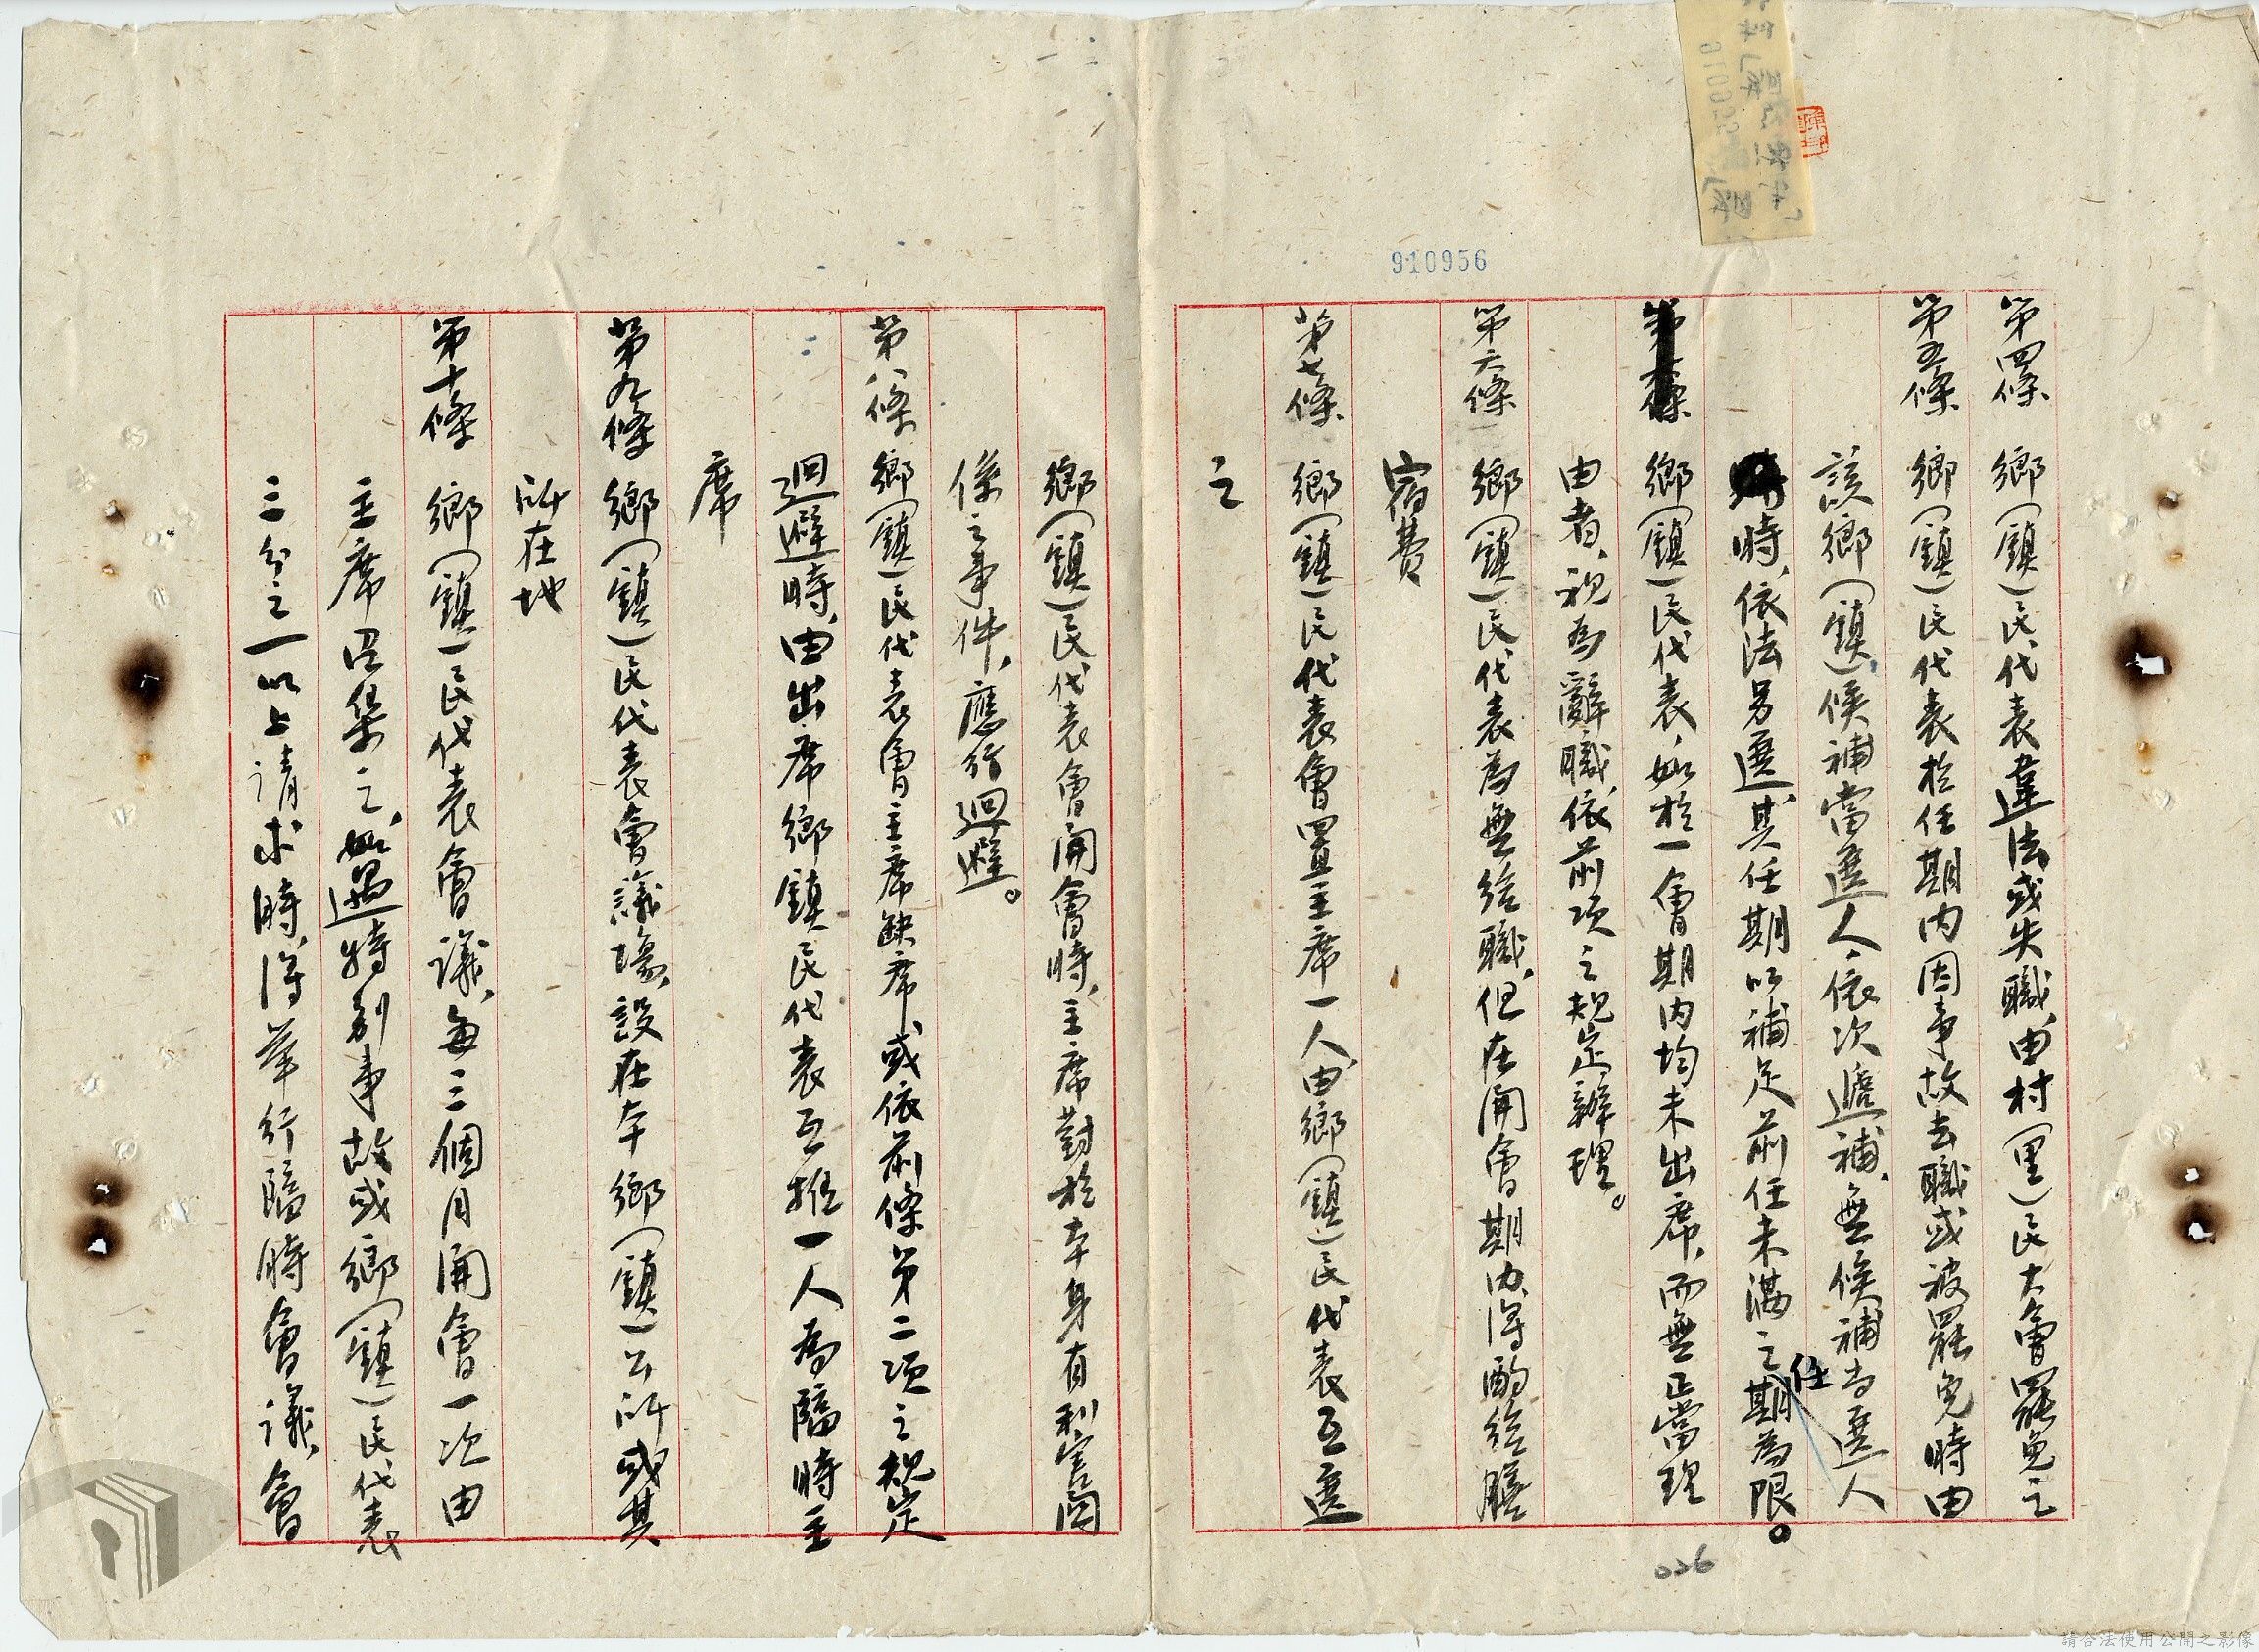 910956
第四條、鄉(鎮)民代表違法或失職、由村(里)民大會罷免之
第五條、鄉(鎮)民代表於任期內因事故去職或被罷免時由
該鄉(鎮)、候補當選人、依次遞補、無候補當選人
時、依法另選、其任期以補足前任未滿之任期為限。
鄉(鎮)民代表、如於一會期內均未出席、而無正當理
由者、視為辭職、依前項之規定辦理。
第六條、鄉(鎮)民代表為無給職、但在開會期內、得酌給膳
宿費
第七條、鄉(鎮)民代表會置主席一人、由鄉(鎮)民代表互選
之
鄉(鎮)民代表會開會時、主席對於本身有利害関
係之事件、應行迴避。
第八條、鄉(鎮)民代表會主席缺席、或依前條第二項之規定
迴避時、由出席鄉鎮民代表互推一人為臨時主
席
第九條 鄉(鎮)民代表會議場、設在本鄉(鎮)公所或其
所在地
第十條 鄉(鎮)民代表會議、每三個月開會一次由
主席召集之、如遇特別事故或鄉(鎮)民代表
三分之一以上請求時、得舉行臨時會議、會
026
請合法使用公開之影像